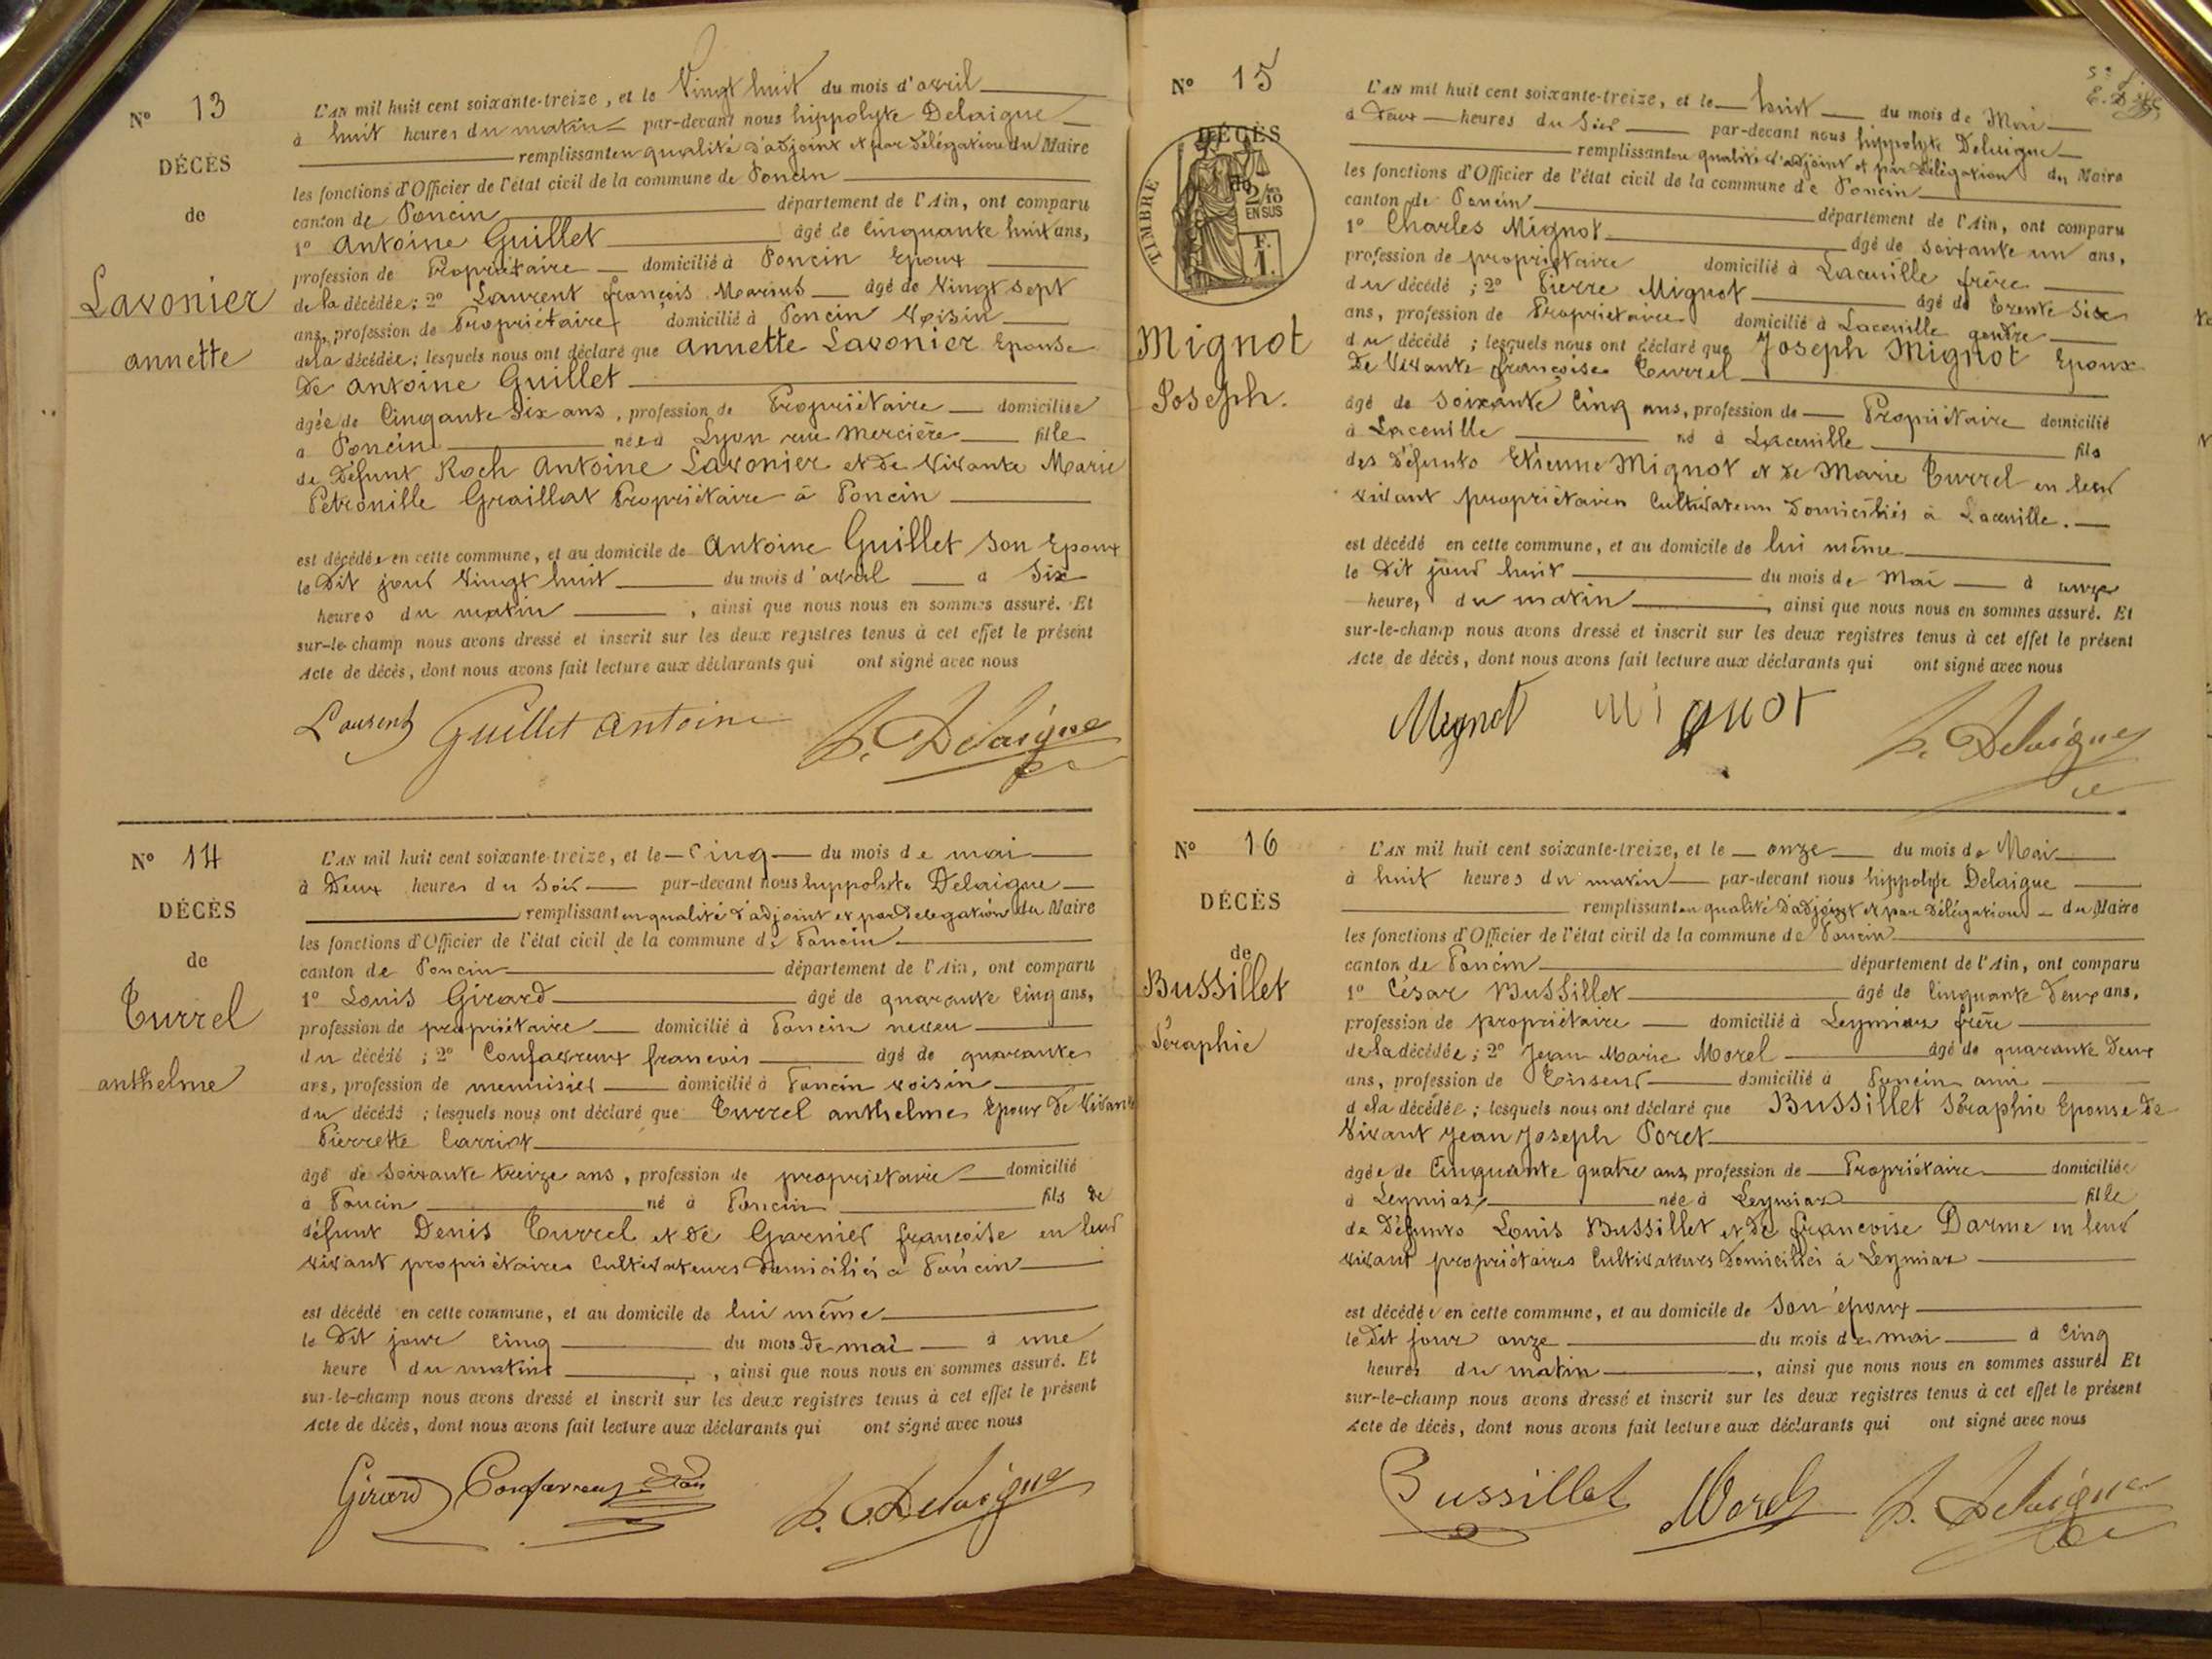 N° 13
DÉCÈS
de
Lavonier
annette
L'AN mil huit cent soixante-treize, et le Vingt huit du mois d'avril
à huit heures du matin par-devant nous hippolyte Delaigue
remplissant en qualité d'adjoint et par délégation du Maire
les fonctions d'Officier de l'état civil de la commune de Poncin
canton de Poncin département de l'Ain, ont comparu
1° Antoine Guillet âgé de Cinquante huit ans,
profession de Propriétaire domicilié à Poncin Epoux
de la décédée; 2° Laurent françois Marius âgé de Vingt sept
ans, profession de Propriétaire domicilié à Poncin Voisin
de la décédée; lesquels nous ont déclaré que Annette Lavonier Epouse
De Antoine Guillet
âgée de Cinqante Six ans, profession de Propriétaire domiciliée
à Poncin née à Lyon rue Mercière fille
de Défunt Roch Antoine Lavonier et de Vivante Marie
Petronille Graillat Propriétaire à Poncin
est décédée en cette commune, et au domicile de Antoine Guillet Son Epoux
le Dit jour Vingt huit du mois d'avril à Six
heures du matin, ainsi que nous nous en sommes assuré. Et
sur-le-champ nous avons dressé et inscrit sur les deux registres tenus à cet effet le présent
Acte de décès, dont nous avons fait lecture aux déclarants qui ont signé avec nous
Laurent Guillet Antoine h. Delaigue
N° 14
DÉCÈS
de
Turrel
anthelme
L'AN mil huit cent soixante-treize, et le Cinq du mois de mai
à Deux heures du Soir par-devant nous hyppolyte Delaigue
remplissant en qualité d'adjoint et par delegation du Maire
les fonctions d'Officier de l'état civil de la commune de Poncin
canton de Poncin département de l'Ain, ont comparu
1° Louis Girard âgé de quarante Cinq ans,
profession de propriétaire domicilié à Poncin neveu
du décédé; 2° Confavreux francois âgé de quarante
ans, profession de menuisier domicilié à Poncin voisin
du décédé; lesquels nous ont déclaré que Turrel anthelme Epoux De Vivante
Pierrette Carriot
âgé de Soixante treize ans, profession de propriétaire domicilié
à Poncin né à Poncin fils de
défunt Denis Turrel et de Garnier françoise en leur
vivant propriétaires Cultivateurs Domiciliés à Poncin
est décédé en cette commune, et au domicile de lui même
le Dit jour Cinq du mois de mai à une
heure du matin, ainsi que nous nous en sommes assuré. Et
sur-le-champ nous avons dressé et inscrit sur les deux registres tenus à cet effet le présent
Acte de décès, dont nous avons fait lecture aux déclarants qui ont signé avec nous
Girard Confavreux h. Delaigue
N° 15
DÉCÈS
de
TIMBRE
2/10
EN SUS
F.
1.
Mignot
Joseph.
L'AN mil huit cent soixante-treize, et le huit du mois de Mai
à Deux heures du Soir par-devant nous hippolyte Delaigue
remplissant en qualité d'adjoint et par Délégation du Maire
les fonctions d'Officier de l'état civil de la commune de Poncin
canton de Poncin département de l'Ain, ont comparu
1° Charles Mignot âgé de soixante un ans,
profession de propriétaire domicilié à Lacueille frère
du décédé; 2° Pierre Mignot âgé de Trente Six
ans, profession de Propriétaire domicilié à Lacueille gendre
du décédé; lesquels nous ont déclaré que Joseph Mignot Epoux
De Vivante françoise Turrel
âgé de Soixante Cinq ans, profession de Propriétaire domicilié
à Lacueille né à Lacueille fils
des Défunts Etienne Mignot et de Marie Turrel en leur
vivant propriétaires Cultivateurs Domiciliés à Lacueille.
est décédé en cette commune, et au domicile de lui même
le Dit jour huit du mois de Mai à onze
heures du matin, ainsi que nous nous en sommes assuré. Et
sur-le-champ nous avons dressé et inscrit sur les deux registres tenus à cet effet le présent
Acte de décès, dont nous avons fait lecture aux déclarants qui ont signé avec nous
Mignot Mignot h. Delaigue
N° 16
DÉCÈS
de
Bussillet
Séraphie
L'AN mil huit cent soixante-treize, et le onze du mois de Mai
à huit heures du matin par-devant nous hippolyte Delaigue
remplissant en qualité d'adjoint et par Délégation du Maire
les fonctions d'Officier de l'état civil de la commune de Poncin
canton de Poncin département de l'Ain, ont comparu
1° César Bussillet âgé de Cinquante Deux ans,
profession de propriétaire domicilié à Leymiaz frère
de la décédée; 2° Jean Marie Morel âgé de quarante Deux
ans, profession de Tisseur domicilié à Poncin ami
de la décédée; lesquels nous ont déclaré que Bussillet Séraphie Epouse De
Vivant Jean Joseph Poret
âgée de Cinquante quatre ans, profession de Propriétaire domiciliée
à Leymiaz née à Leymiaz fille
de Défunts Louis Bussillet et de francoise Darme en leur
vivant propriétaires Cultivateurs Domiciliés à Leymiaz
est décédée en cette commune, et au domicile de Son époux
le Dit jour onze du mois de mai à Cinq
heures du matin, ainsi que nous nous en sommes assuré. Et
sur-le-champ nous avons dressé et inscrit sur les deux registres tenus à cet effet le présent
Acte de décès, dont nous avons fait lecture aux déclarants qui ont signé avec nous
Bussillet Morel h. Delaigue